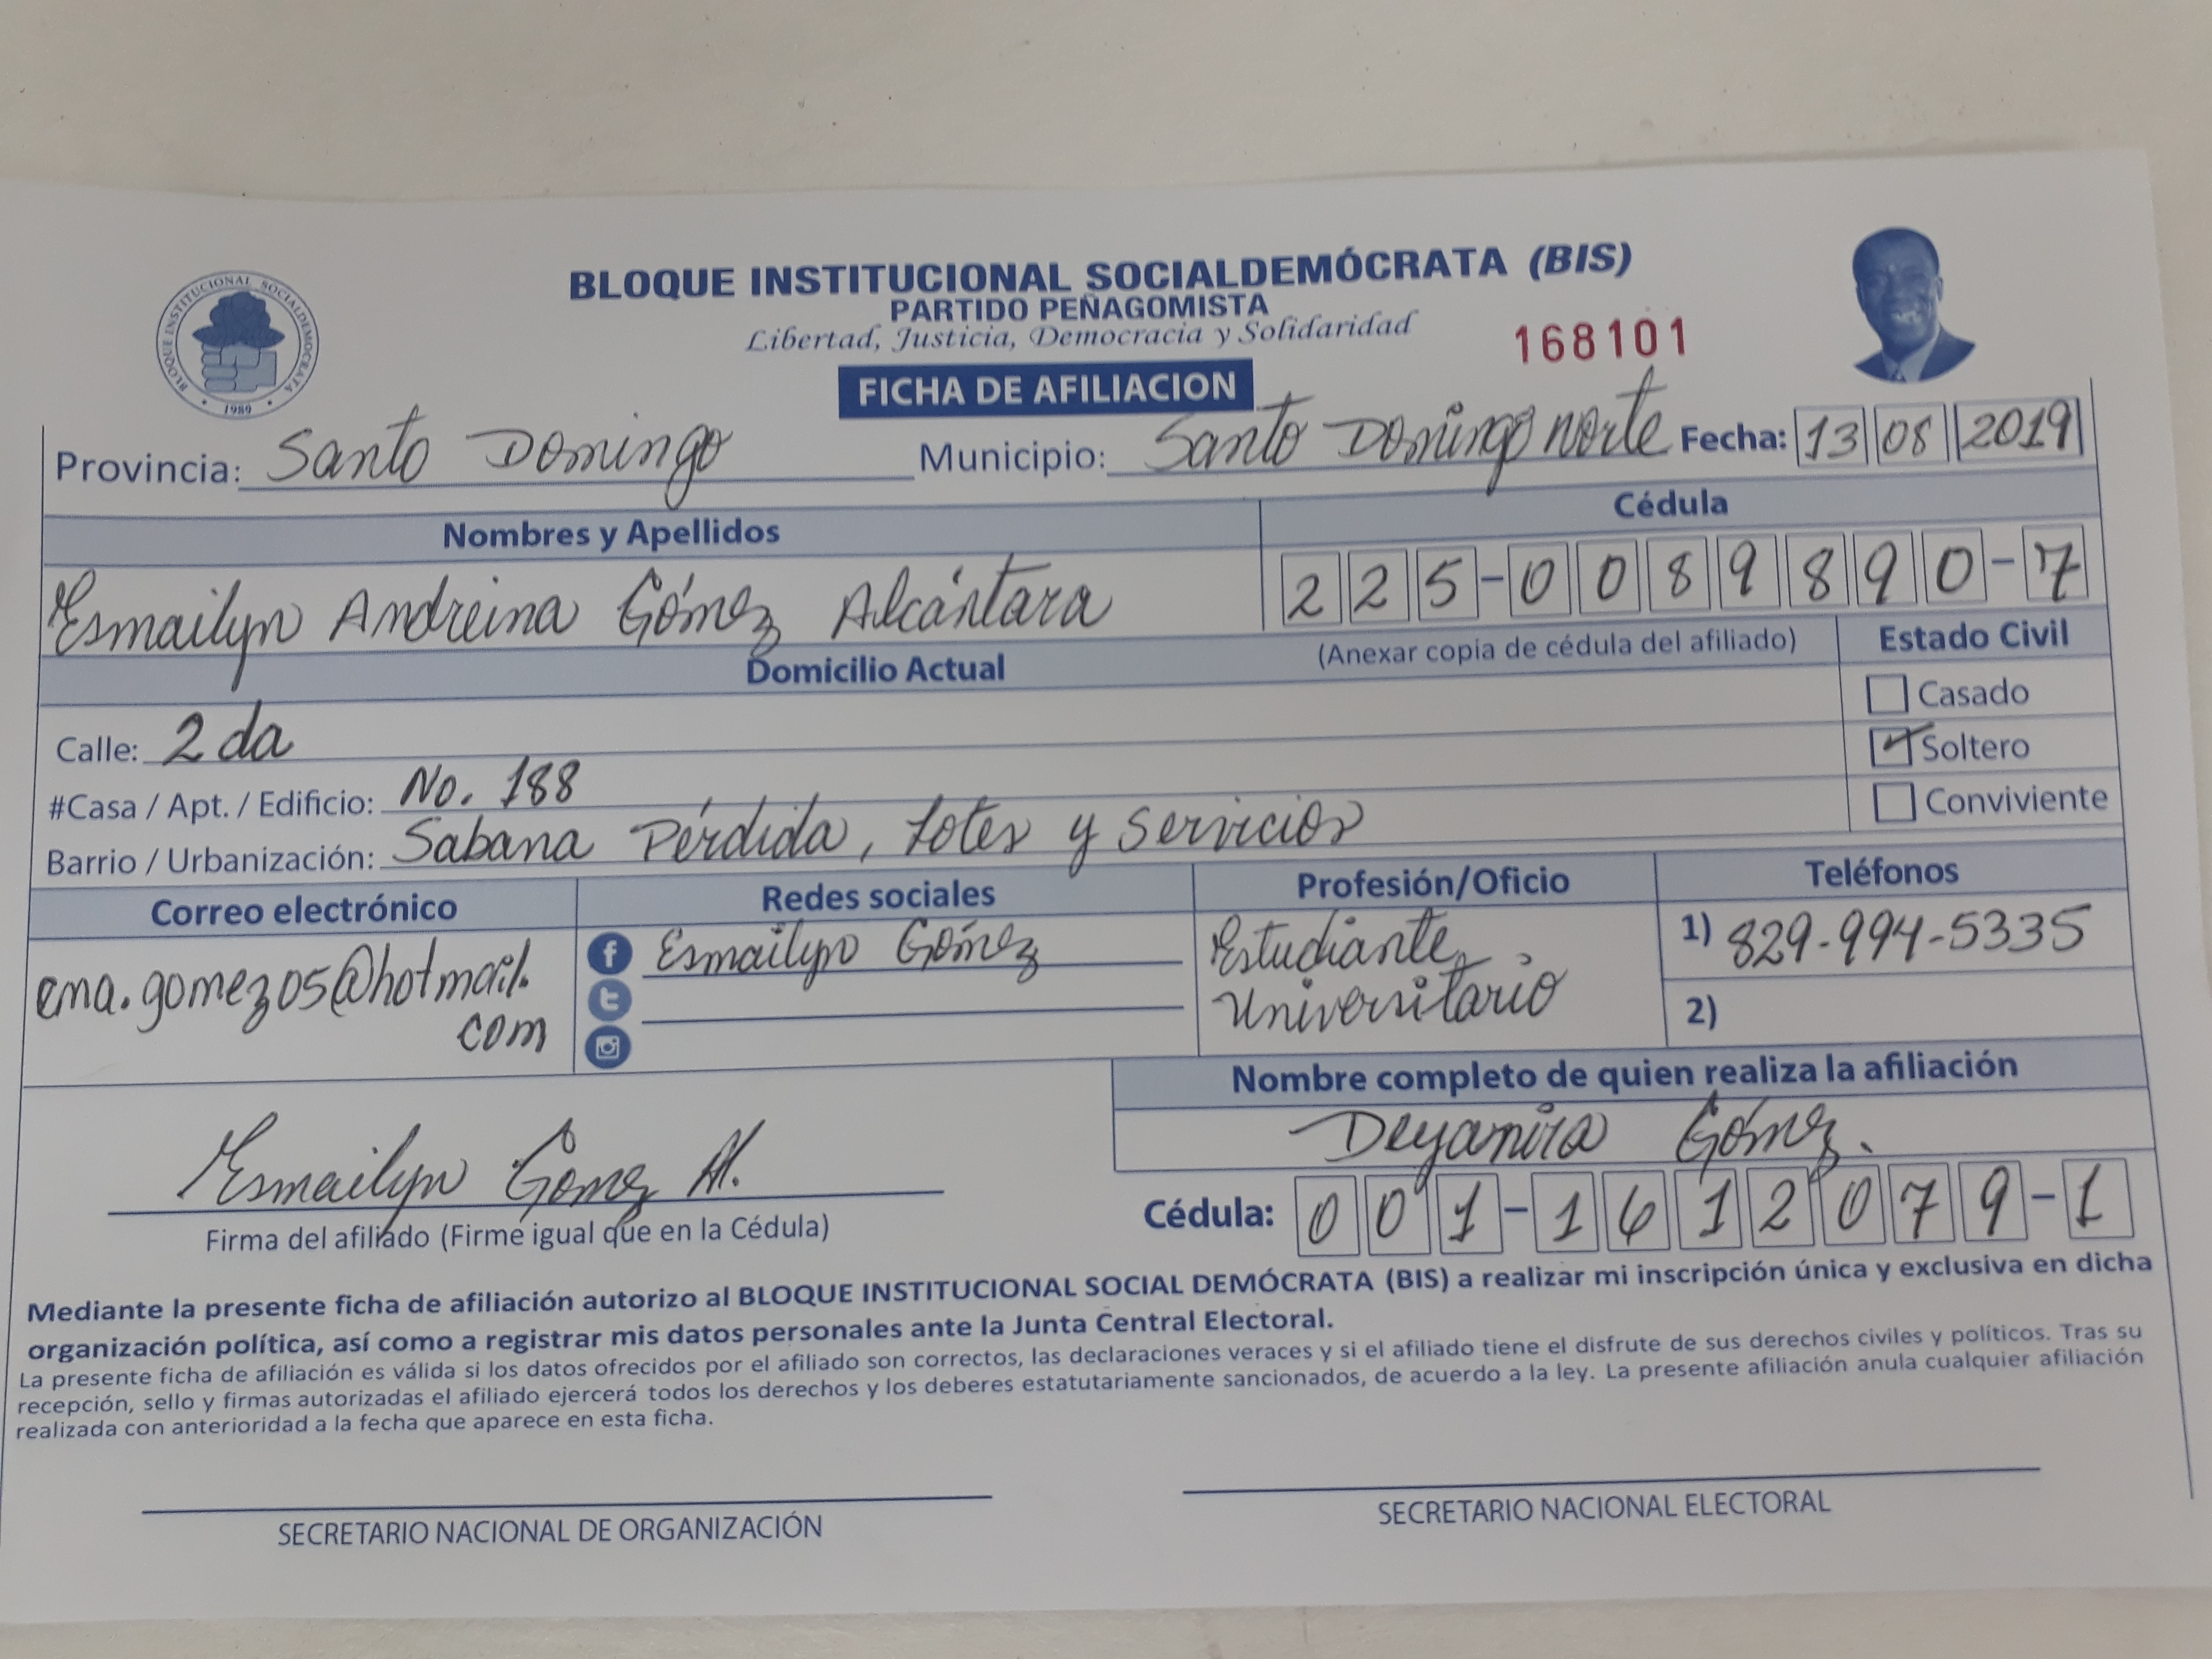 BLOQUE INSTITUCIONAL SOCIALDEMÓCRATA (BIS)
PARTIDO PEÑAGOMISTA
Libertad, Justicia, Democracia y Solidaridad
168101
BLOQUE INSTITUCIONAL SOCIALDEMOCRATA
1989
FICHA DE AFILIACION
Provincia: Santo Domingo Municipio: Santo Domingo norte Fecha: 13 08 2019
Nombres y Apellidos Cédula
Esmailyn Andreina Gómez Alcántara 225-0089890-7
Domicilio Actual (Anexar copia de cédula del afiliado) Estado Civil
Casado
Calle: 2da Soltero
#Casa / Apt. / Edificio: No. 188 Conviviente
Barrio / Urbanización: Sabana Pérdida, Lotes y Servicios
Correo electrónico Redes sociales Profesión/Oficio Teléfonos
ema.gomez05@hotmail. Esmailyn Gómez Estudiante 1) 829-994-5335
com Universitario 2)
Nombre completo de quien realiza la afiliación
Deyamira Gómez.
Esmailyn Gómez Al.
Firma del afiliado (Firme igual que en la Cédula) Cédula: 001-1612079-1
Mediante la presente ficha de afiliación autorizo al BLOQUE INSTITUCIONAL SOCIAL DEMÓCRATA (BIS) a realizar mi inscripción única y exclusiva en dicha
organización política, así como a registrar mis datos personales ante la Junta Central Electoral.
La presente ficha de afiliación es válida si los datos ofrecidos por el afiliado son correctos, las declaraciones veraces y si el afiliado tiene el disfrute de sus derechos civiles y políticos. Tras su
recepción, sello y firmas autorizadas el afiliado ejercerá todos los derechos y los deberes estatutariamente sancionados, de acuerdo a la ley. La presente afiliación anula cualquier afiliación
realizada con anterioridad a la fecha que aparece en esta ficha.
SECRETARIO NACIONAL DE ORGANIZACIÓN SECRETARIO NACIONAL ELECTORAL